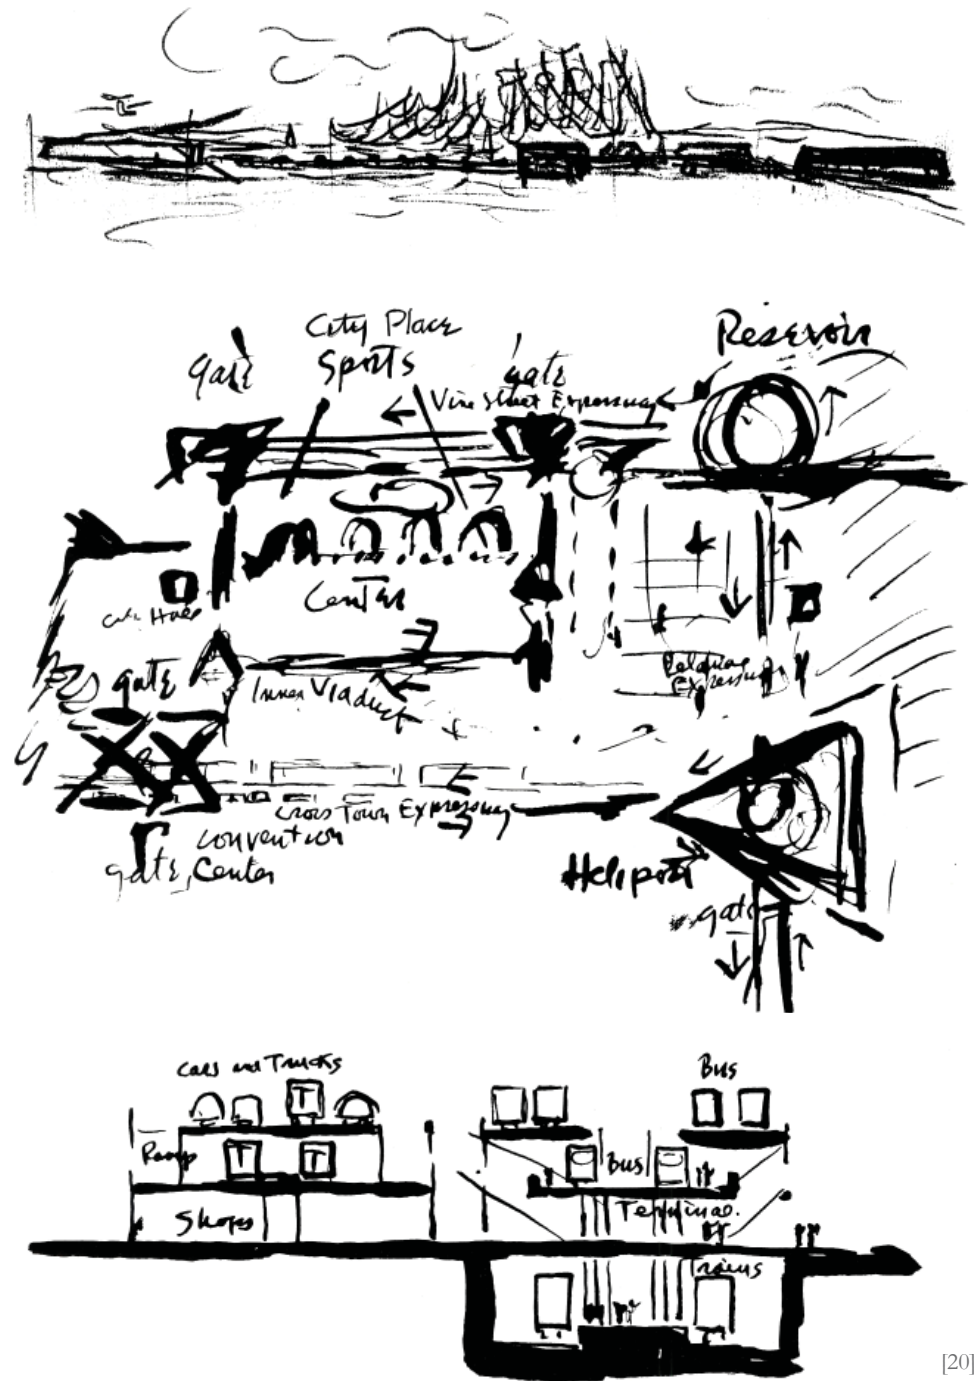 City Place
Sports
gate
gate
Reservoir
Vine Street Expressway
Center
City Hall
gate
Inner Viaduct
Expressway
Cross Town Expressway
Convention
Center
gate
Heliport
gate
Cars and Trucks
Bus
T
Ramp
T
T
Bus
Shops
Terminal.
Trains
[20]